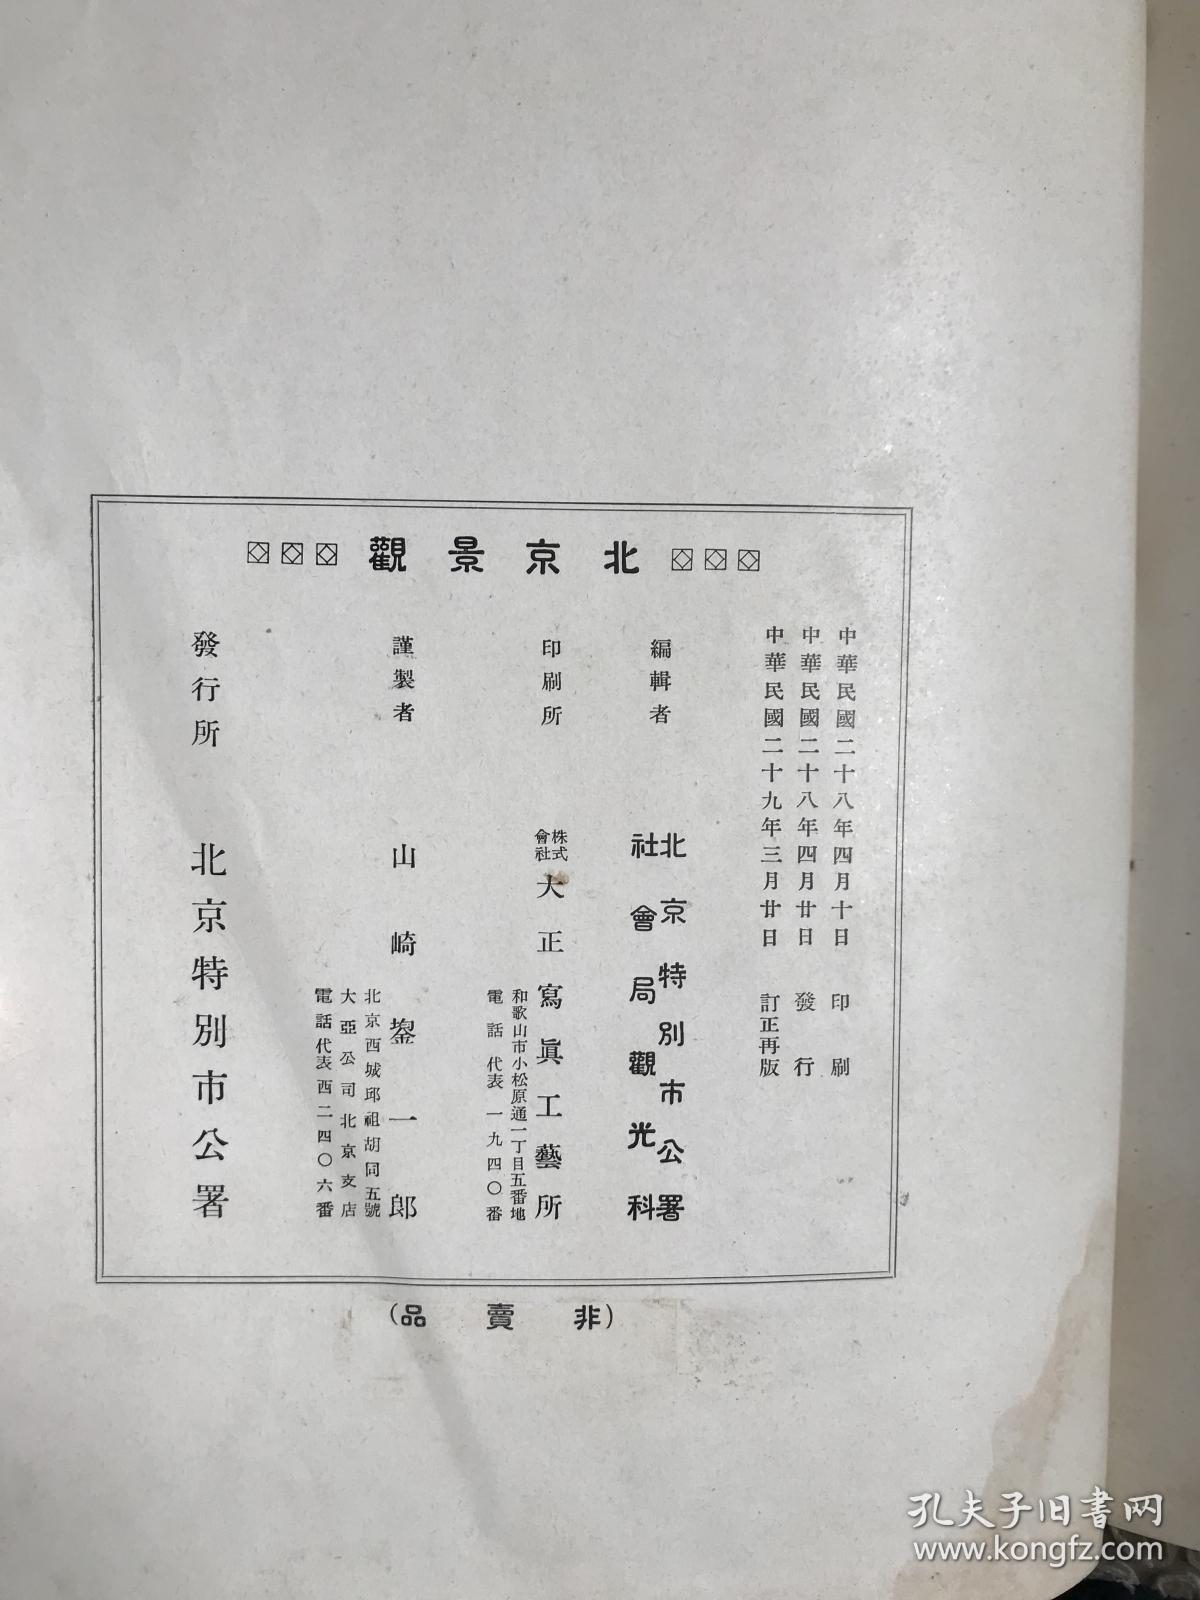 北京景觀
中華民國二十八年四月十日 印刷
中華民國二十八年四月廿日 發行
中華民國二十九年三月廿日 訂正再版
編輯者 北京特別市公署
社會局觀光科
印刷所 株式會社 大正寫眞工藝所
和歌山市小松原通一丁目五番地
電話代表一九四〇番
謹製者 山崎鋆一郎
北京西城邱祖胡同五號
大亞公司北京支店
電話代表西二四〇六番
發行所 北京特別市公署
(非賣品)
孔夫子旧书网
www.kongfz.com